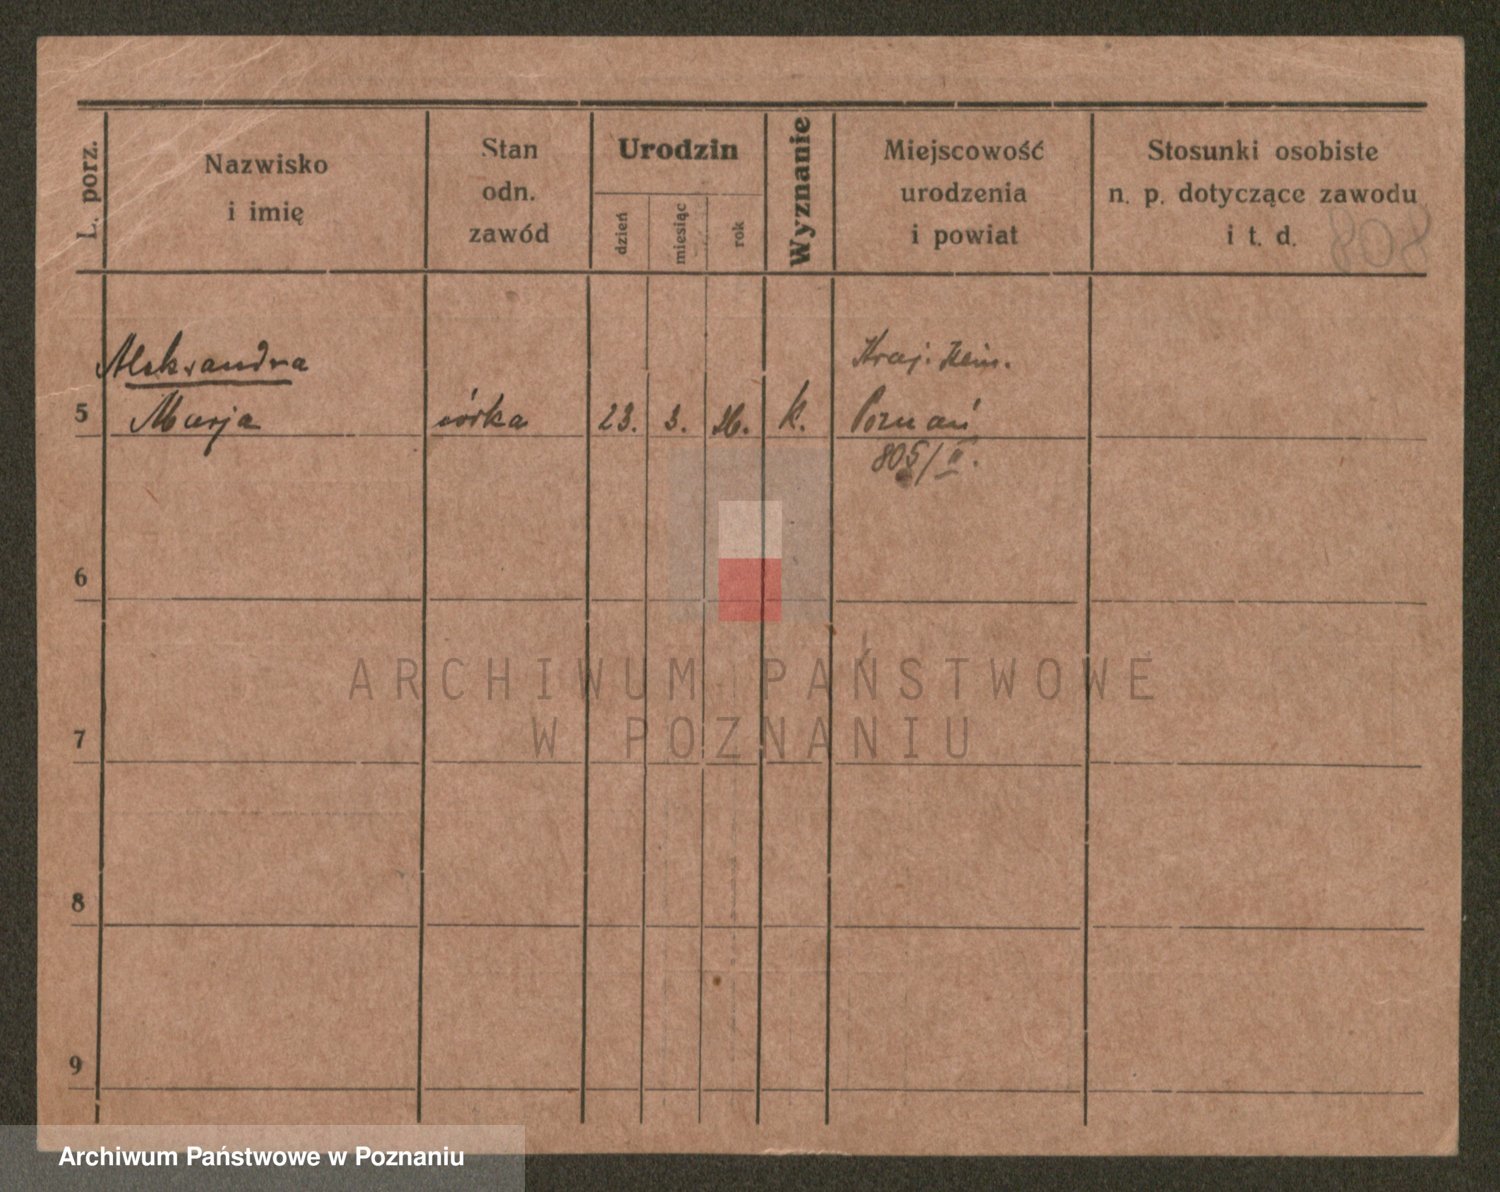 L. porz.
Nazwisko
i imię
Stan
odn.
zawód
Urodzin
dzień
miesiąc
rok
Wyznanie
Miejscowość
urodzenia
i powiat
Stosunki osobiste
n. p. dotyczące zawodu
i t. d.
808
Aleksandra
5 Marja córka 23. 3. 26. k. Poznań
805/II.
6
7
8
9
ARCHIWUM PAŃSTWOWE
W POZNANIU
Archiwum Państwowe w Poznaniu